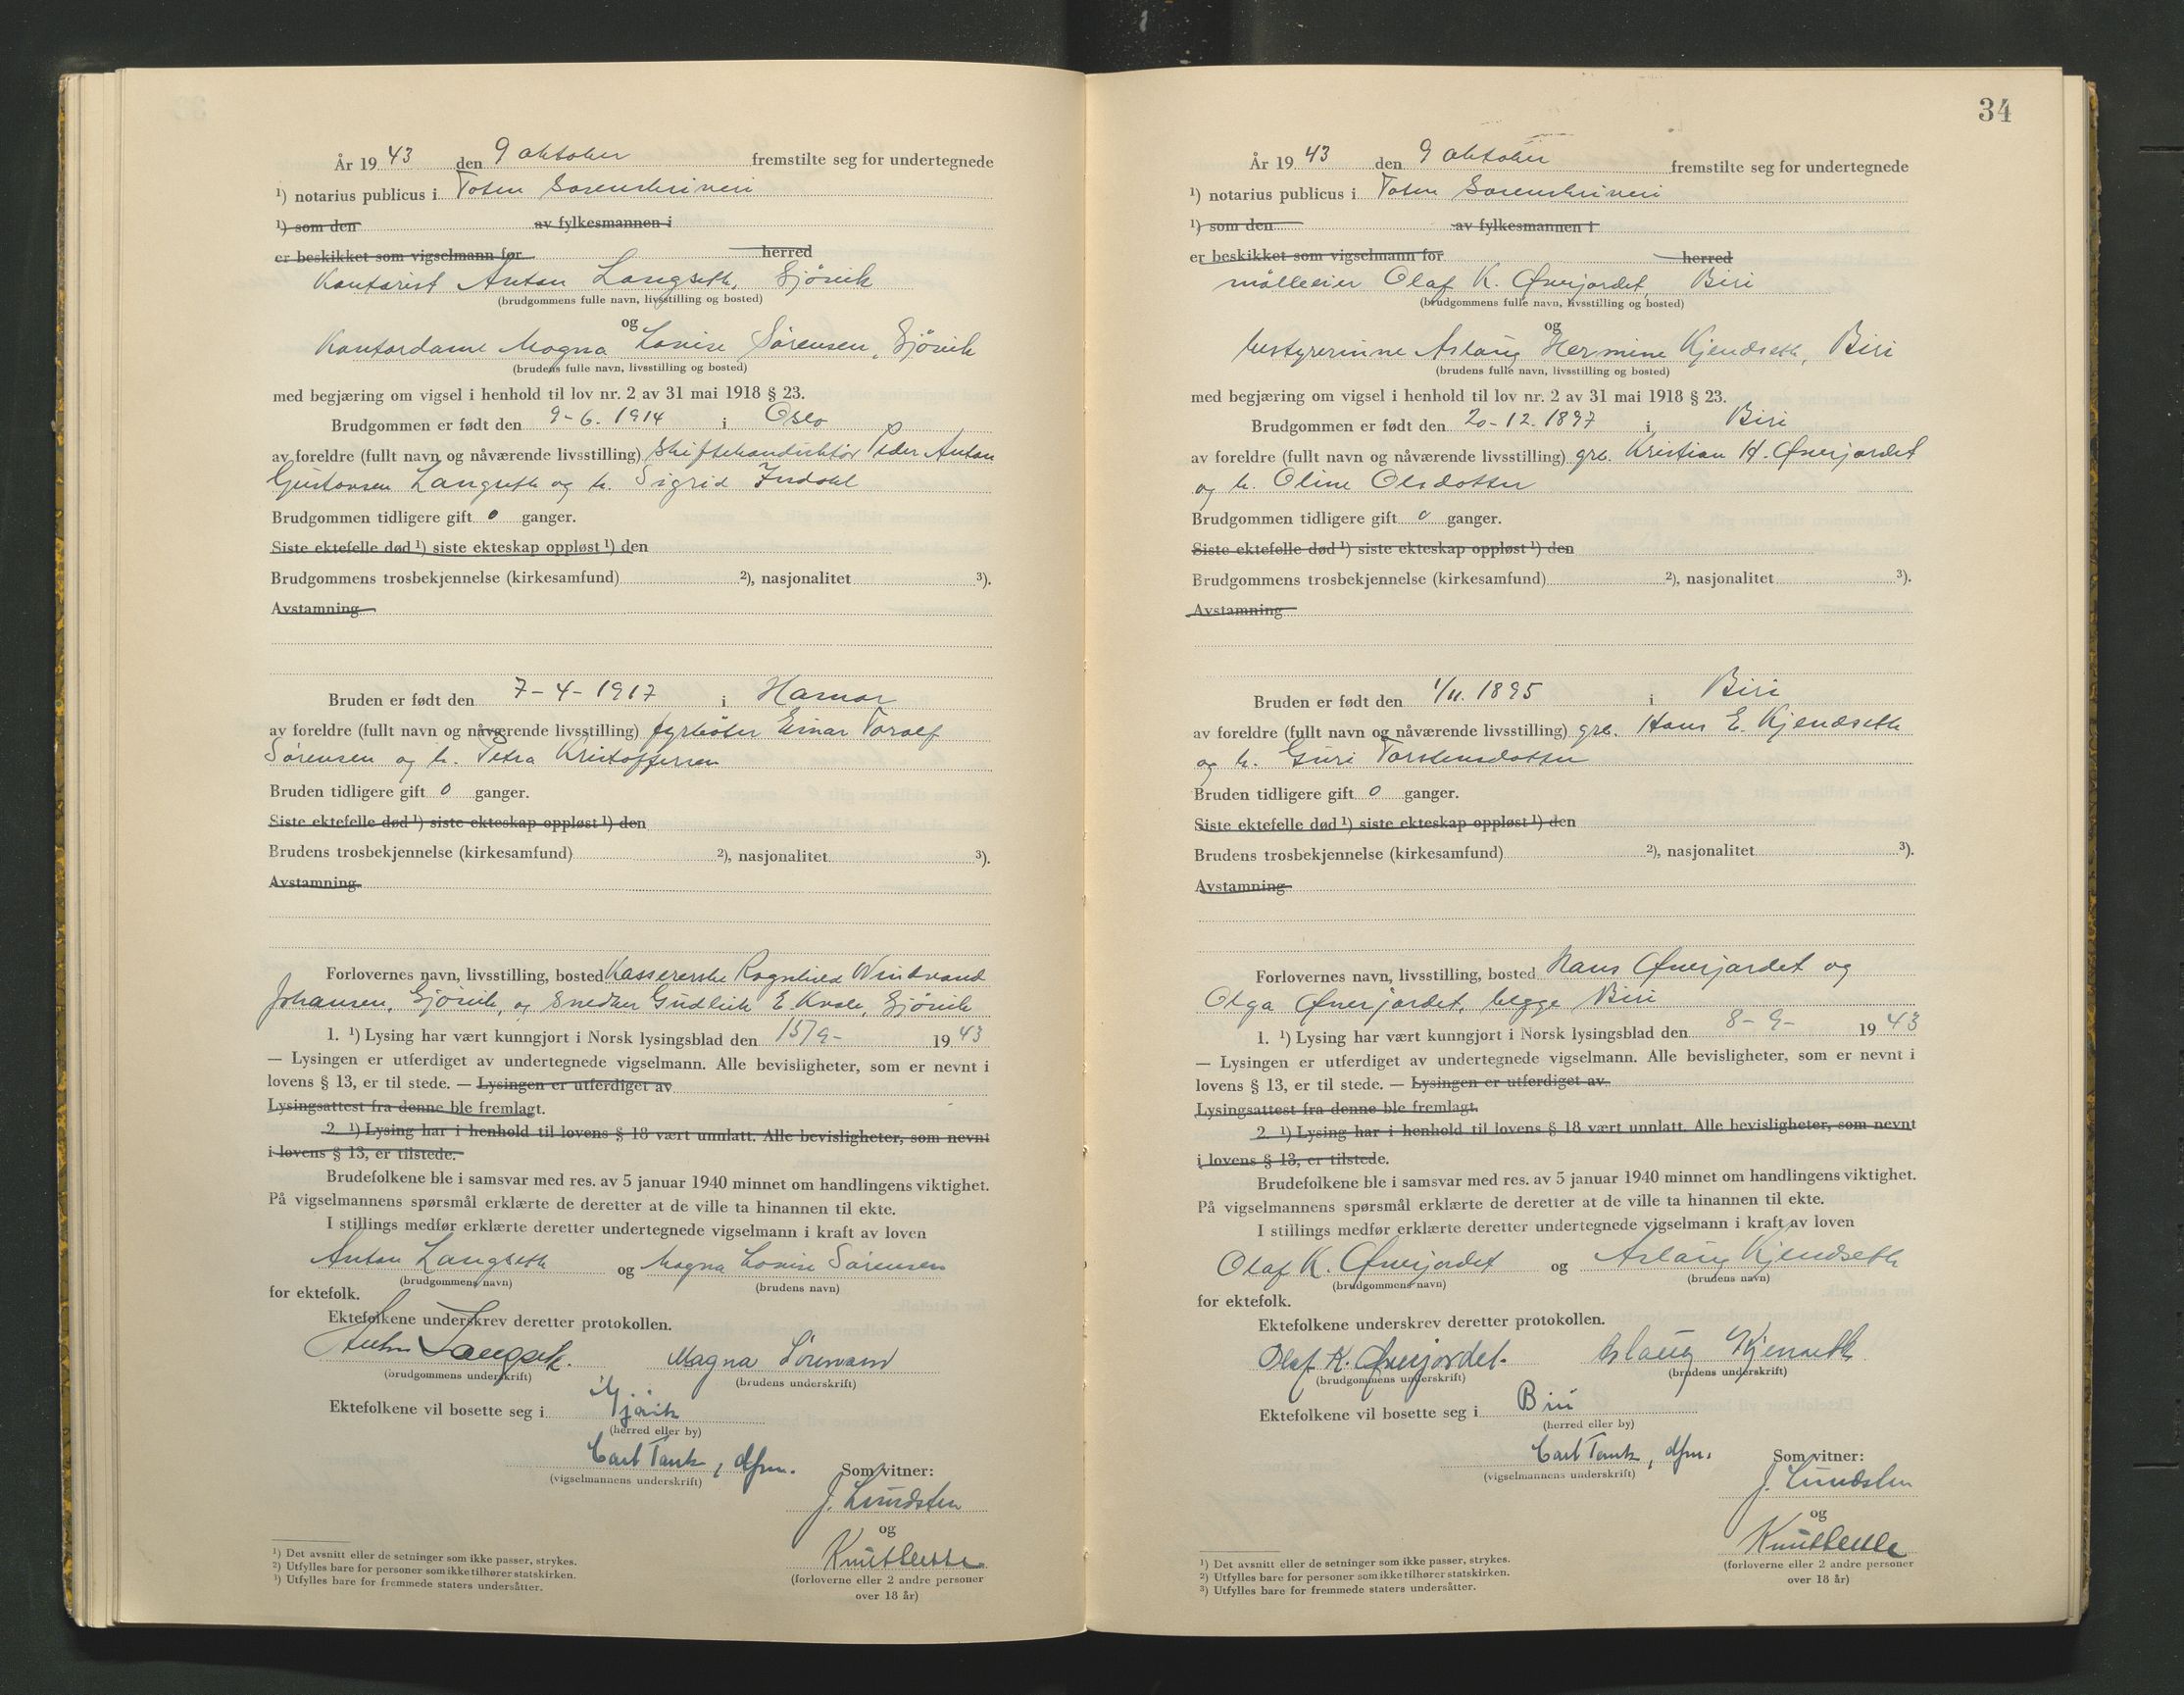 År 19 43 den 9 oktober fremstilte seg for undertegnede
¹) notarius publicus i Toten Sorenskriveri
¹) som den av fylkesmannen i
er beskikket som vigselmann for herred
Kontorist Anton Langseth, Gjövik
(brudgommens fulle navn, livsstilling og bosted)
og
Kontordame Magna Lovise Sörensen, Gjövik
(brudens fulle navn, livsstilling og bosted)
med begjæring om vigsel i henhold til lov nr. 2 av 31 mai 1918 § 23.
Brudgommen er født den 9-6. 1914 i Oslo
av foreldre (fullt navn og nåværende livsstilling) skiftekonduktör Peder Anton
Gustavsen Langseth og h. Sigrid Indahl
Brudgommen tidligere gift 0 ganger.
Siste ektefelle død ¹) siste ekteskap oppløst ¹) den
Brudgommens trosbekjennelse (kirkesamfund) ²), nasjonalitet ³).
Avstamning
Bruden er født den 7-4-1917 i Hamar
av foreldre (fullt navn og nåværende livsstilling) fyrböter Einar Toralf
Sörensen og h. Petra Kristoffersen
Bruden tidligere gift 0 ganger.
Siste ektefelle død ¹) siste ekteskap oppløst ¹) den
Brudens trosbekjennelse (kirkesamfund) ²), nasjonalitet ³).
Avstamning
Forlovernes navn, livsstilling, bosted Kassererske Ragnhild Windvand
Johansen, Gjövik, og snedker Gudleik E. Kvale, Gjövik
1. ¹) Lysing har vært kunngjort i Norsk lysingsblad den 15/9- 19 43
— Lysingen er utferdiget av undertegnede vigselmann. Alle bevisligheter, som er nevnt i
lovens § 13, er til stede. — Lysingen er utferdiget av
Lysingsattest fra denne ble fremlagt.
2. ¹) Lysing har i henhold til lovens § 18 vært unnlatt. Alle bevisligheter, som nevnt
i lovens § 13, er tilstede.
Brudefolkene ble i samsvar med res. av 5 januar 1940 minnet om handlingens viktighet.
På vigselmannens spørsmål erklærte de deretter at de ville ta hinannen til ekte.
I stillings medfør erklærte deretter undertegnede vigselmann i kraft av loven
Anton Langseth og Magna Lovise Sörensen
(brudgommens navn) (brudens navn)
for ektefolk.
Ektefolkene underskrev deretter protokollen.
Anton Langseth. Magna Sörensen
(brudgommens underskrift) (brudens underskrift)
Ektefolkene vil bosette seg i Gjövik
(herred eller by)
Carl Tank, dfm.
(vigselmannens underskrift)
Som vitner:
J. Lundsten
og
(forloverne eller 2 andre personer
over 18 år)
¹) Det avsnitt eller de setninger som ikke passer, strykes.
²) Utfylles bare for personer som ikke tilhører statskirken.
³) Utfylles bare for fremmede staters undersåtter.
34
År 19 43 den 9 oktober fremstilte seg for undertegnede
¹) notarius publicus i Toten Sorenskriveri
¹) som den av fylkesmannen i
er beskikket som vigselmann for herred
mölleeier Olaf K. Øverjordet, Biri
(brudgommens fulle navn, livsstilling og bosted)
og
bestyrerinne Aslaug Hermine Kjendseth, Biri
(brudens fulle navn, livsstilling og bosted)
med begjæring om vigsel i henhold til lov nr. 2 av 31 mai 1918 § 23.
Brudgommen er født den 20-12. 1897 i Biri
av foreldre (fullt navn og nåværende livsstilling) grb. Kristian H. Øverjordet
og h. Oline Olsdotter
Brudgommen tidligere gift 0 ganger.
Siste ektefelle død ¹) siste ekteskap oppløst ¹) den
Brudgommens trosbekjennelse (kirkesamfund) ²), nasjonalitet ³).
Avstamning
Bruden er født den 1/11. 1895 i Biri
av foreldre (fullt navn og nåværende livsstilling) grb. Hans E. Kjendseth
og h. Guri Torstensdotter
Bruden tidligere gift 0 ganger.
Siste ektefelle død ¹) siste ekteskap oppløst ¹) den
Brudens trosbekjennelse (kirkesamfund) ²), nasjonalitet ³).
Avstamning
Forlovernes navn, livsstilling, bosted Hans Øverjordet og
Olga Øverjordet, begge Biri
1. ¹) Lysing har vært kunngjort i Norsk lysingsblad den 8-9- 19 43
— Lysingen er utferdiget av undertegnede vigselmann. Alle bevisligheter, som er nevnt i
lovens § 13, er til stede. — Lysingen er utferdiget av
Lysingsattest fra denne ble fremlagt.
2. ¹) Lysing har i henhold til lovens § 18 vært unnlatt. Alle bevisligheter, som nevnt
i lovens § 13, er tilstede.
Brudefolkene ble i samsvar med res. av 5 januar 1940 minnet om handlingens viktighet.
På vigselmannens spørsmål erklærte de deretter at de ville ta hinannen til ekte.
I stillings medfør erklærte deretter undertegnede vigselmann i kraft av loven
Olaf K. Øverjordet og Aslaug Kjendseth
(brudgommens navn) (brudens navn)
for ektefolk.
Ektefolkene underskrev deretter protokollen.
Olaf K. Øverjordet. Aslaug Kjenseth
(brudgommens underskrift) (brudens underskrift)
Ektefolkene vil bosette seg i Biri
(herred eller by)
Carl Tank, dfm.
(vigselmannens underskrift)
Som vitner:
J. Lundsten
og
(forloverne eller 2 andre personer
over 18 år)
¹) Det avsnitt eller de setninger som ikke passer, strykes.
²) Utfylles bare for personer som ikke tilhører statskirken.
³) Utfylles bare for fremmede staters undersåtter.